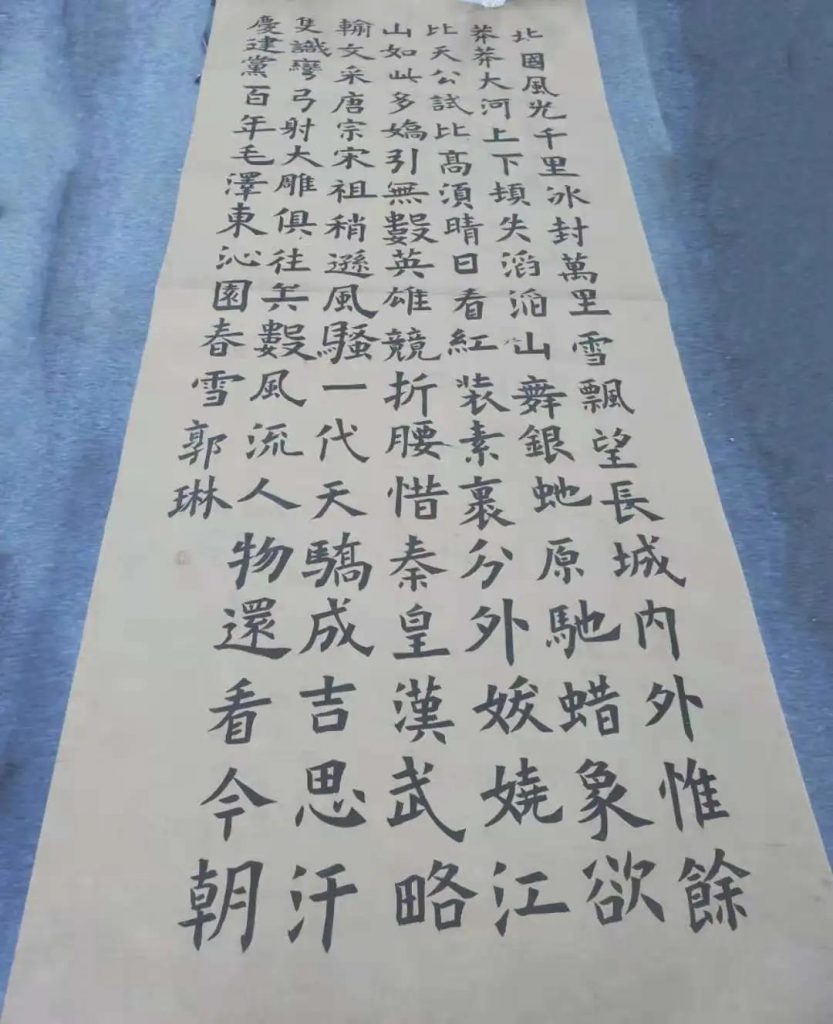 北國風光千里冰封萬里雪飄望長城內外惟餘
莽莽大河上下頓失滔滔山舞銀虵原馳蜡象欲
比天公試比髙須晴日看紅装素裹分外妖嬈江
山如此多嬌引無數英雄競折腰惜秦皇漢武略
輸文采唐宗宋祖稍遜風騷一代天驕成吉思汗
隻識彎弓射大雕俱往矣數風流人物還看今朝
慶建黨百年毛澤東沁園春雪郭琳